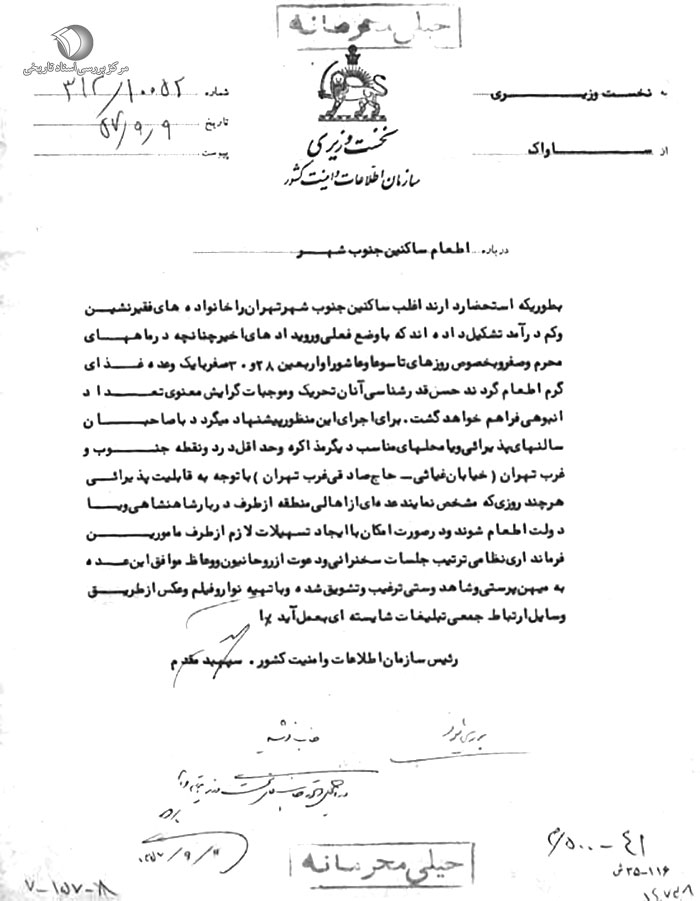 خیلی محرمانه
مرکز بررسی اسناد تاریخی
به نخست وزیری
شماره ۳۱۲/۱۰۰۵۲
تاریخ ۵۷/۹/۹
نخست وزیری
پیوست
از ساواک
سازمان اطلاعات و امنیت کشور
درباره اطعام ساکنین جنوب شهر
بطوریکه استحضار دارند اغلب ساکنین جنوب شهر تهران را خانواده های فقیرنشین
وکم درآمد تشکیل داده اند که با وضع فعلی و رویدادهای اخیر چنانچه در ماههای
محرم و صفر و بخصوص روزهای تاسوعا و عاشورا و اربعین ۲۸ و ۳۰ صفر با یک وعده غذای
گرم اطعام گردند حسن قدرشناسی آنان تحریک و موجبات گرایش معنوی تعداد
انبوهی فراهم خواهد گشت. برای اجرای این منظور پیشنهاد میگردد با صاحبان
سالنهای پذیرائی و یا محلهای مناسب دیگر مذاکره و حداقل در دو نقطه جنوب و
غرب تهران (خیابان غیاثی - حاج صادقی غرب تهران) با توجه به قابلیت پذیرائی
هر چند روزی که مشخص نمایند عده ای از اهالی منطقه از طرف دربار شاهنشاهی و یا
دولت اطعام شوند و در صورت امکان با ایجاد تسهیلات لازم از طرف مامورین
فرمانداری نظامی ترتیب جلسات سخنرانی و دعوت از روحانیون و وعاظ موافق این عده
به میهن پرستی و شاهدوستی ترغیب و تشویق شده و با تهیه نوار و فیلم و عکس از طریق
وسایل ارتباط جمعی تبلیغات شایسته ای بعمل آید
رئیس سازمان اطلاعات و امنیت کشور. سپهبد مقدم
۱۳۵۷/۹/۱۱
خیلی محرمانه
۳۵-۱۱۶ ش